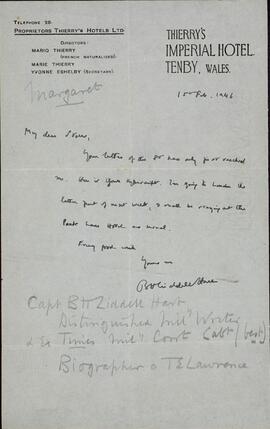 TELEPHONE 28.
PROPRIETORS THIERRY'S HOTELS LTD
DIRECTORS:
MARIO THIERRY
(FRENCH NATURALIZED)
MARIE THIERRY
YVONNE ESHELBY (SECRETARY)
THIERRY'S
IMPERIAL HOTEL.
TENBY, WALES.
Margaret
1946
My dear
Your letter of the has only just reached
me. Here is your typescript. I'm going to London the
latter part of next week, & shall be staying at the
Park Lane Hotel as usual.
Every good wish
Yours
B H Liddell Hart
Capt B H Liddell Hart
Distinguished Mily Writer
& Ex Times Mily (best)
Biographer o T E Lawrence